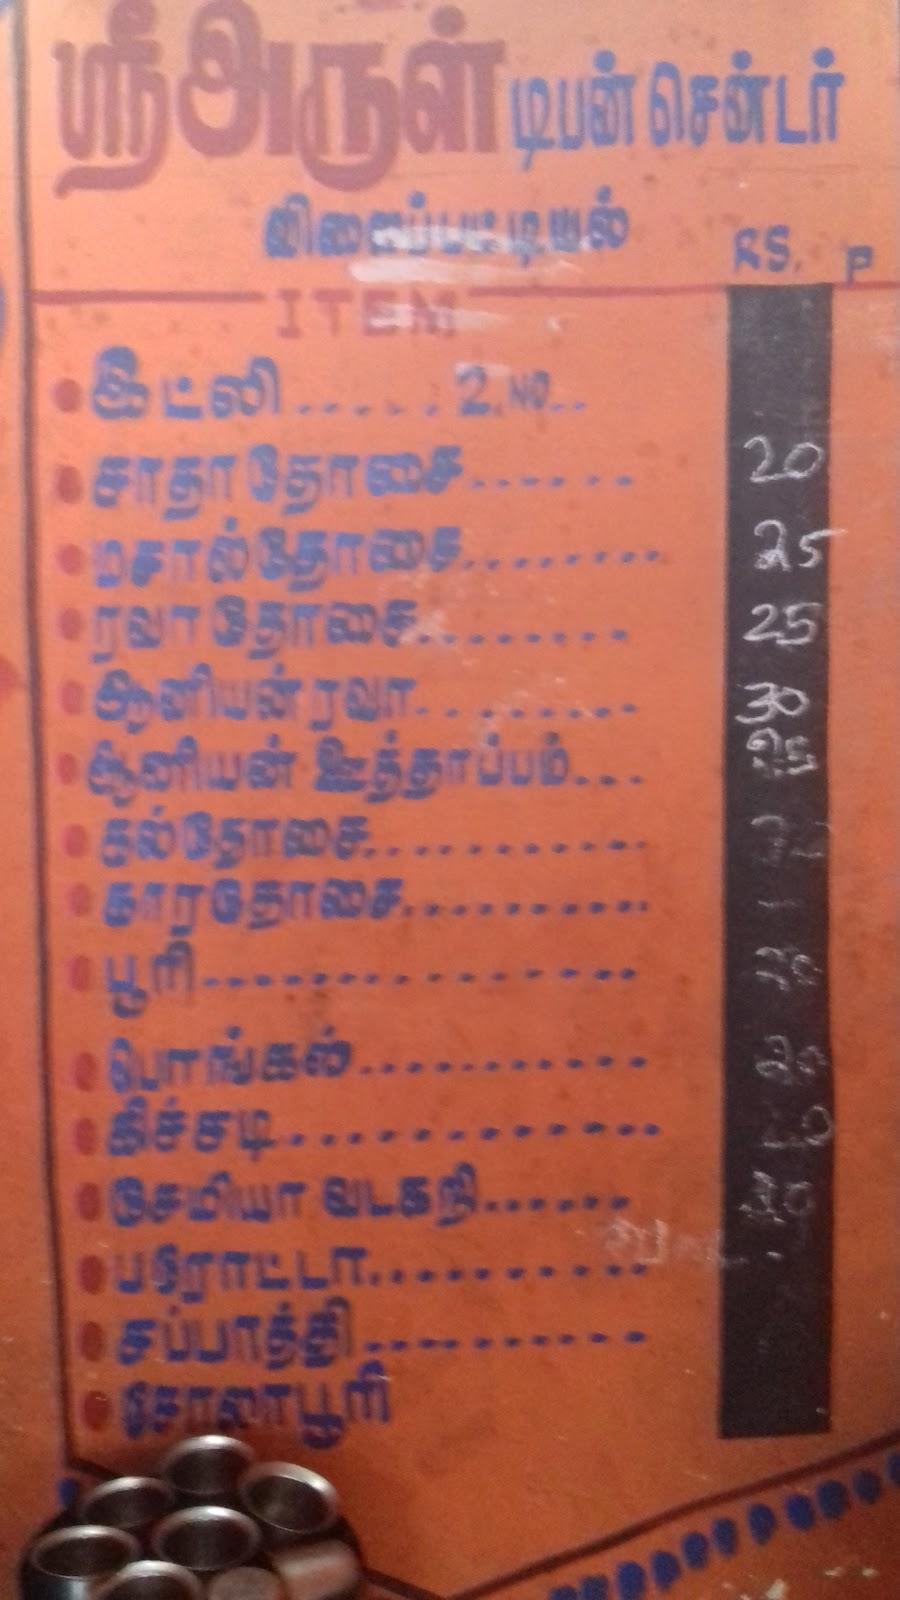 ஸ்ரீ அருள் டிபன் சென்டர்
விலைப்பட்டியல்
RS. P
ITEM
இட்லி ..... 2.NO..
சாதா தோசை...... 20
மசால்தோசை......... 25
ரவா தோசை........ 25
ஆனியன் ரவா......... 30
ஆனியன் ஊத்தாப்பம்... 25
கல்தோசை............
காரதோசை..........
பூரி................
பொங்கல்............ 20
கிச்சடி..............
சேமியா வடகறி......
பரோட்டா...........
சப்பாத்தி..........
சோலாபூரி